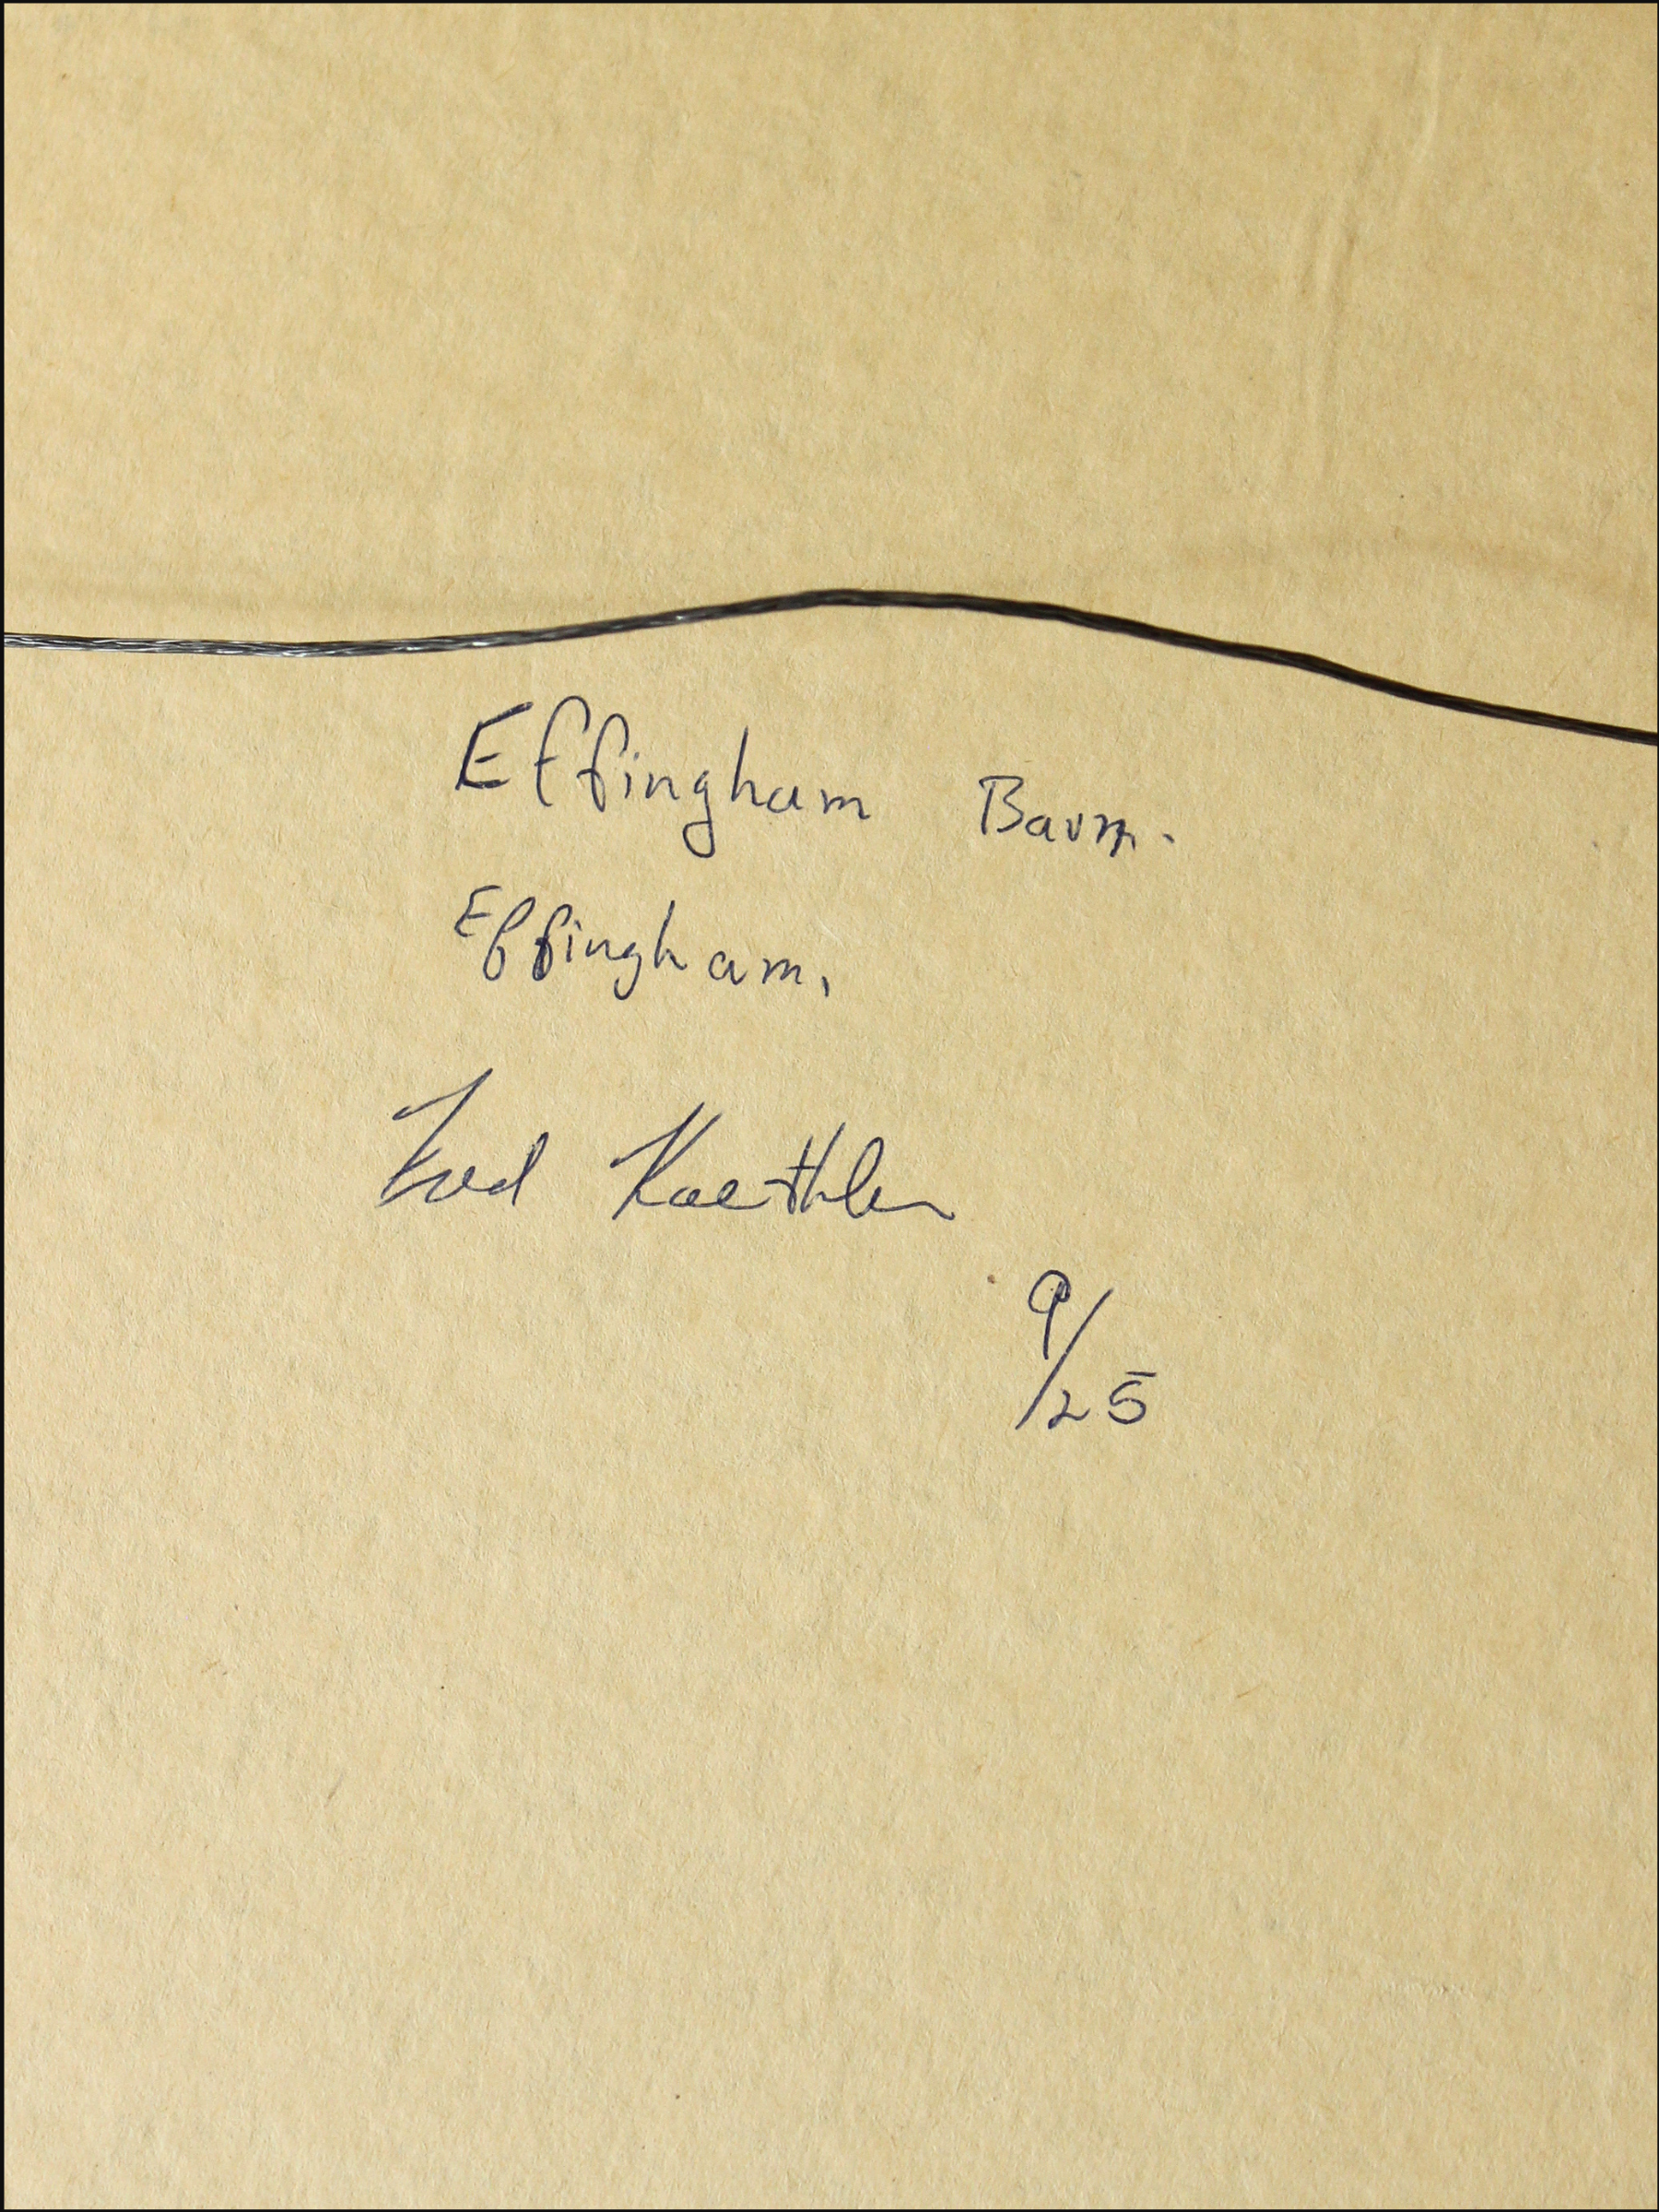 Effingham Barn.
Effingham.
Fred Koethler
9/25